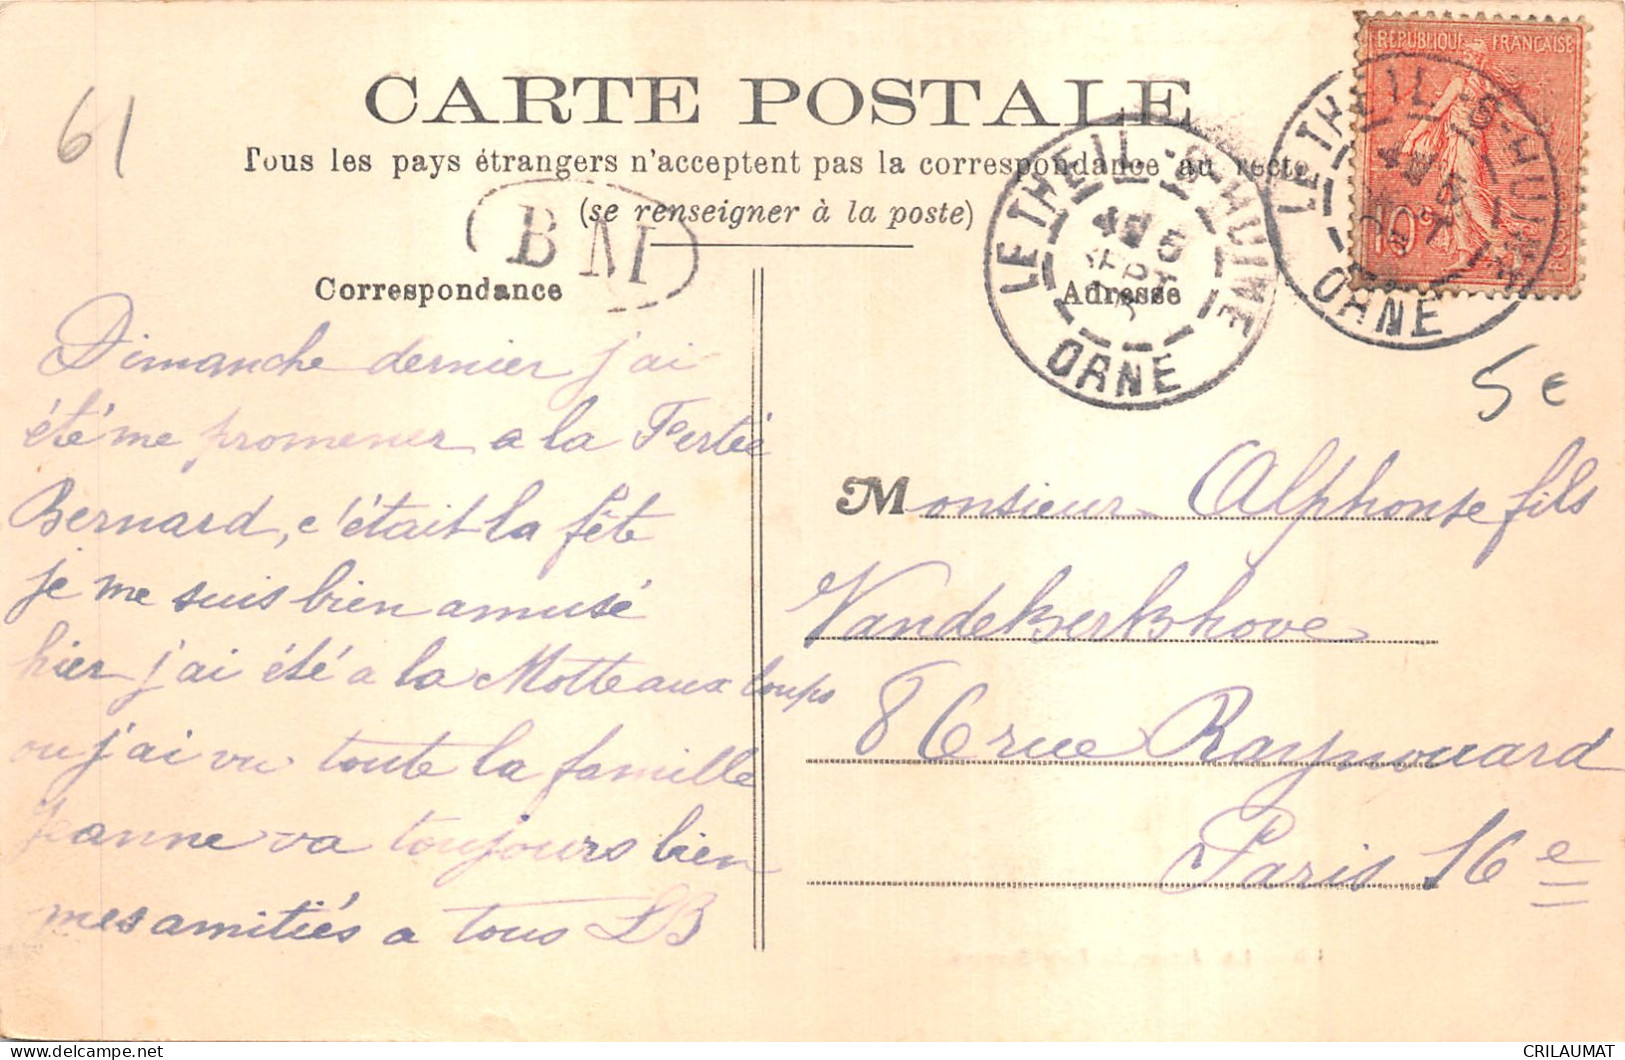 61
CARTE POSTALE
Tous les pays étrangers n'acceptent pas la correspondance au recto
(se renseigner à la poste)
BM
RÉPUBLIQUE FRANÇAISE
10c
LE THEIL-S-HUINE
ORNE
LE THEIL-S-HUINE
ORNE
Correspondance
Adresse
5€
Dimanche dernier j'ai
été me promener a la Ferté
Bernard, c'était la fête
je me suis bien amusé
hier j'ai été a la Motte aux loups
ou j'ai vu toute la famille
Jeanne va toujours bien
mes amitiés a tous LB
Monsieur Alphonse fils
Vandekerkhove
86 rue Raynouard
Paris 16e
CRILAUMAT